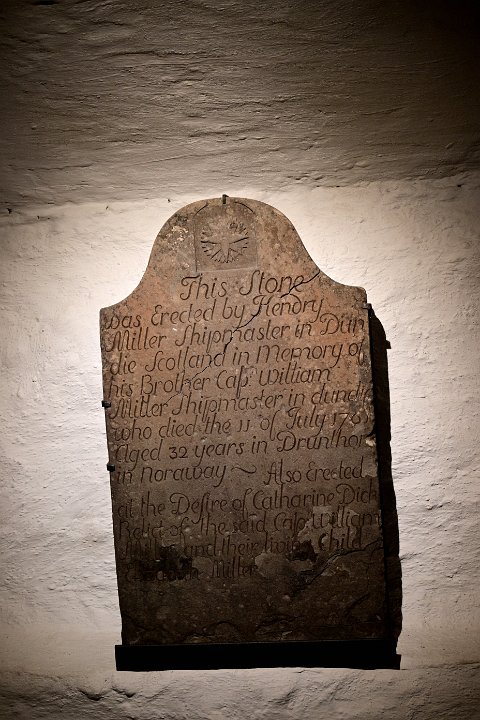 This Stone
was Erected by Hendry
Miller Shipmaster in Dun
die Scotland in Memory of
his Brother Cap: William
Miller Shipmaster in dundie
who died the 11 of July
Aged 32 years in Drunthon
in Noraway ~ Also Erected
at the Desire of Catharine Dick
Relict of the said Cap: William
Miller and their living Child
Miller